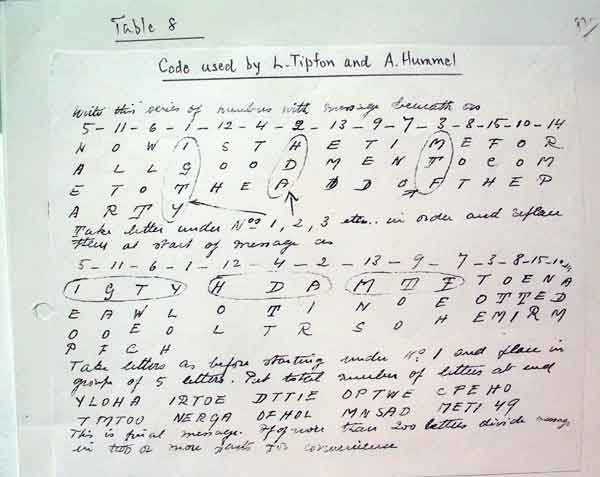 Table 8
Code used by L. Tipton and A. Hummel
Write this series of numbers with message beneath as
5 - 11 - 6 - 1 - 12 - 4 - 2 - 13 - 9 - 7 - 3 - 8 - 15 - 10 - 14
N O W I S T H E T I M E F O R
A L L G O O D M E N T O C O M
E T O T H E A D D O F T H E P
A R T Y
Take letter under Nos 1, 2, 3 etc.. in order and replace
them at start of message as
5 - 11 - 6 - 1 - 12 - 4 - 2 - 13 - 9 - 7 - 3 - 8 - 15 - 10
I G T Y H D A M T F T O E N A
E A W L O T I N O E O T T E D
O O E O L T R S O H E M I R M
P F C H
Take letters as before starting under No. 1 and place in
groups of 5 letters. Put total number of letters at end
YLOHA IRTOE DTTIE OPTWE CPEHO
TMTOO NERGA OFHOL MNSAD METI 49
This is final message. If of more than 200 letters divide message
in two or more parts for convenience